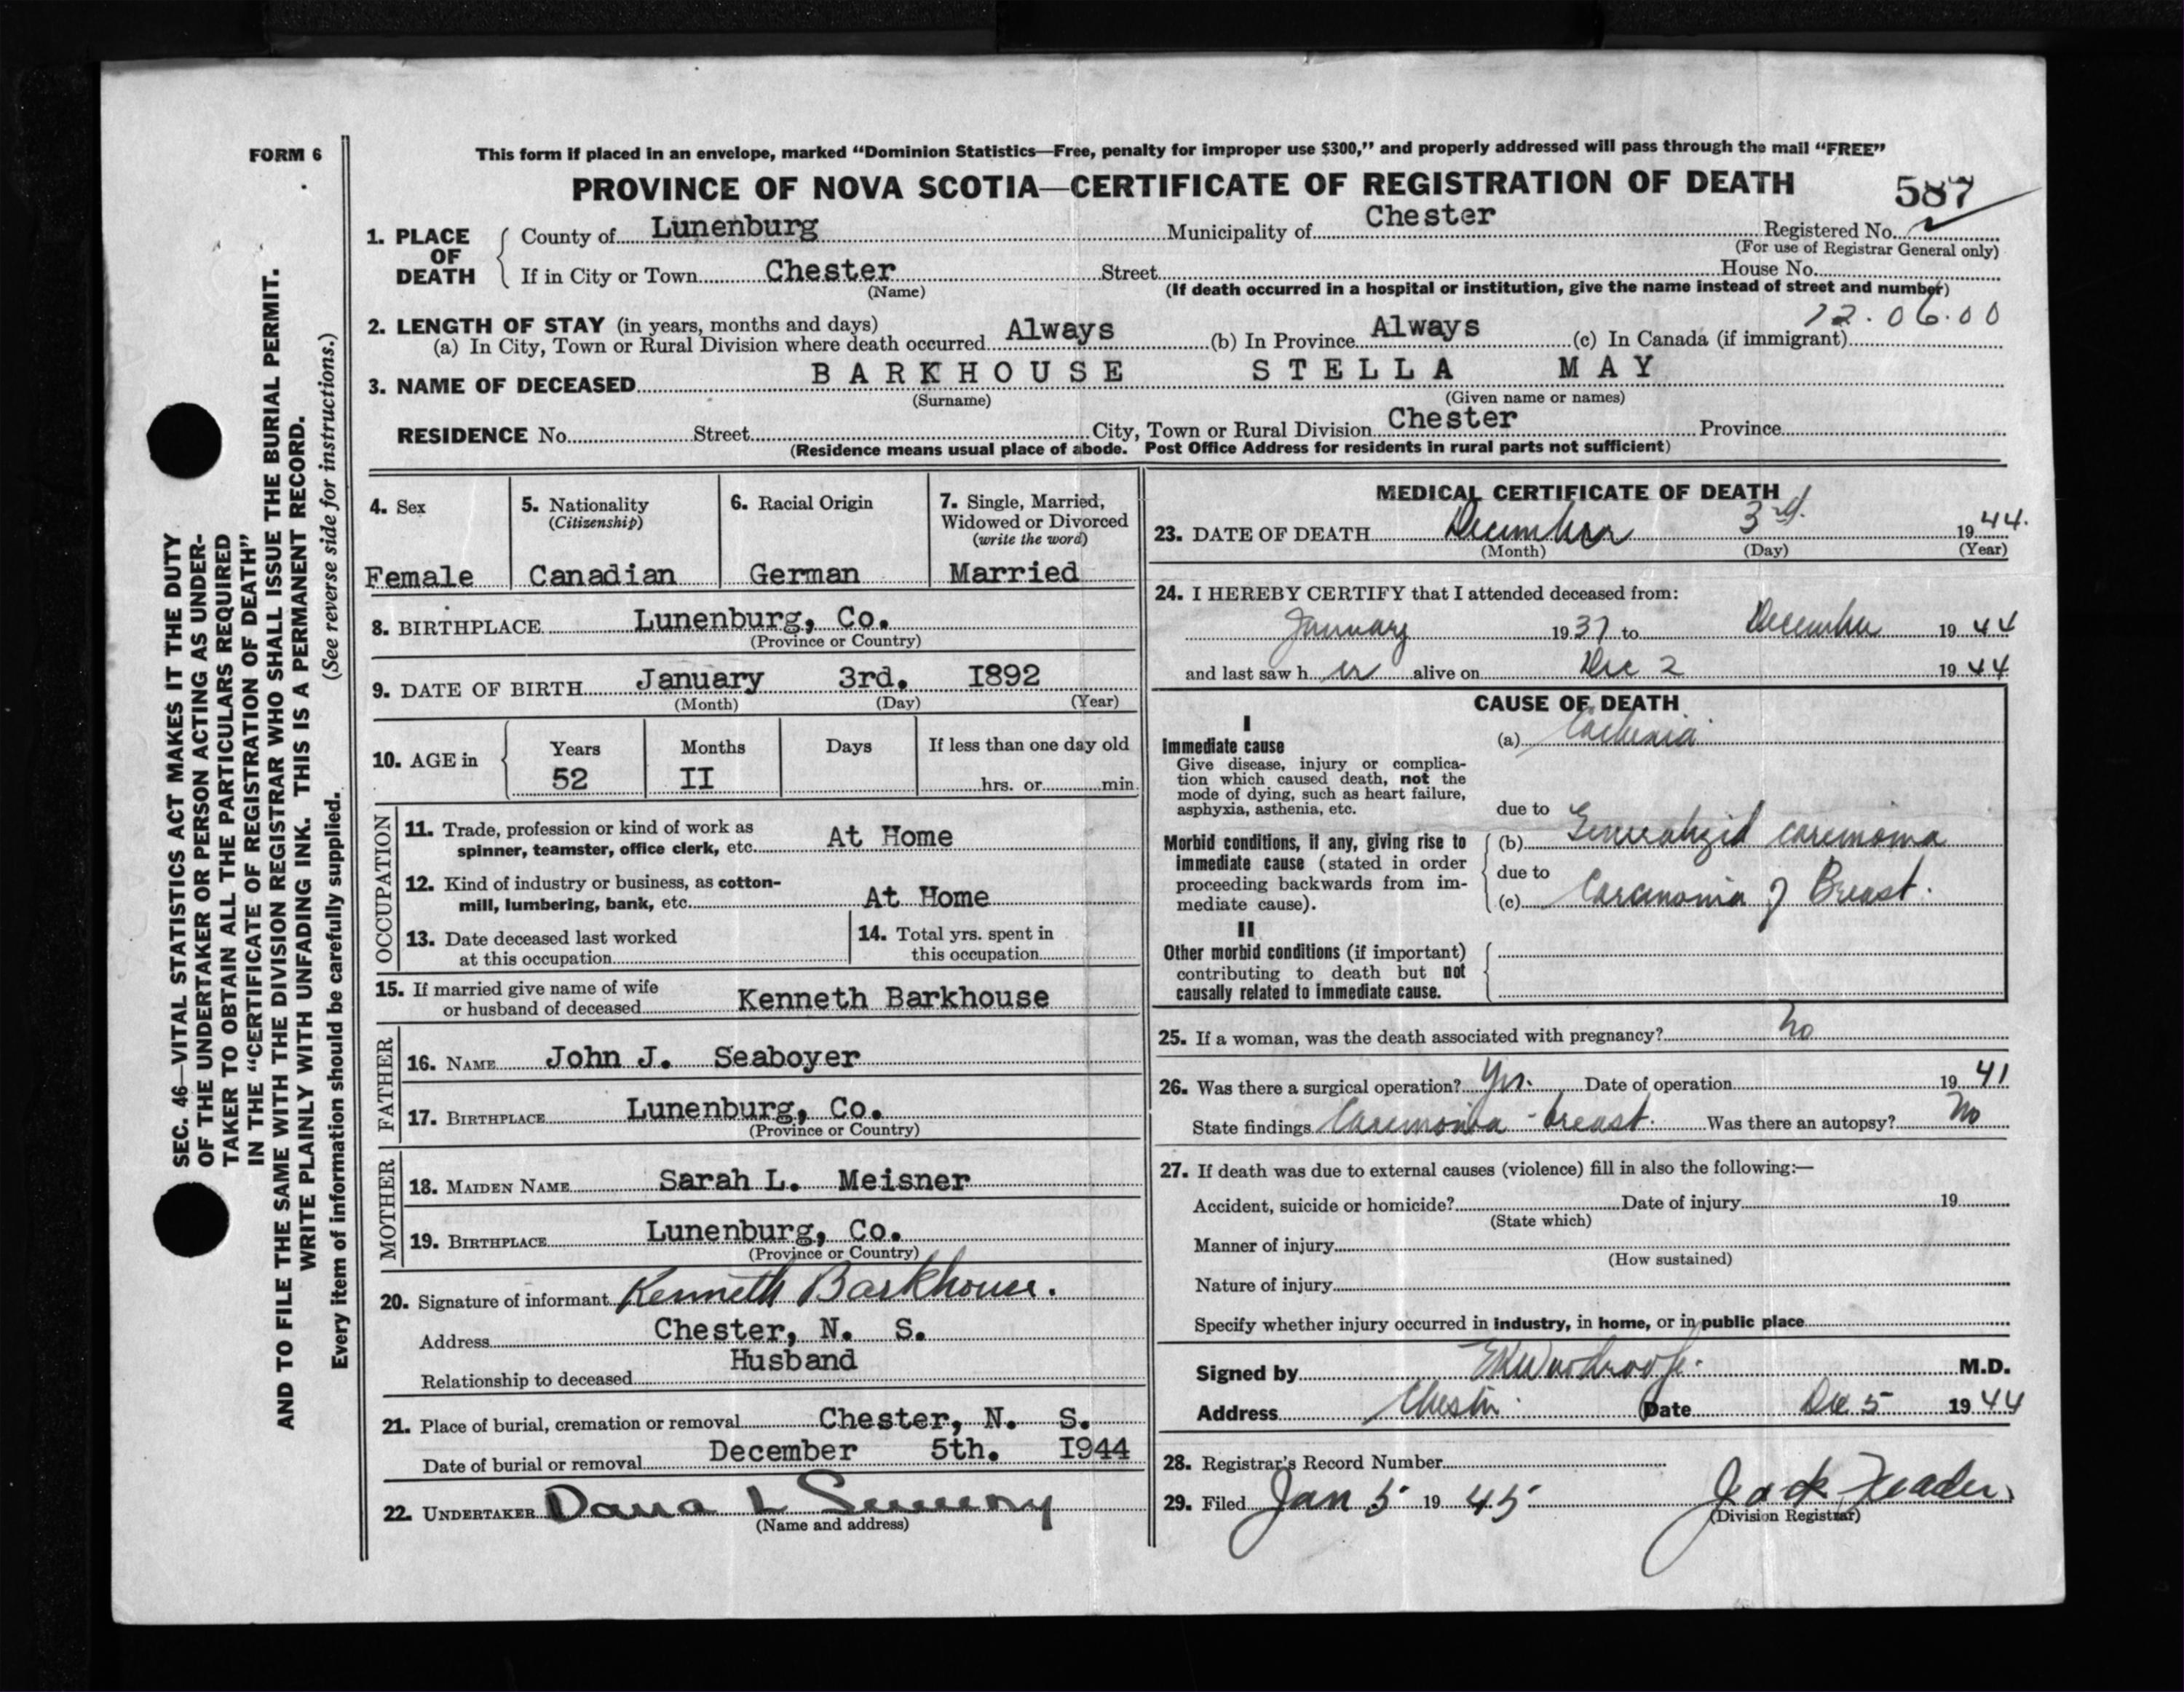 FORM 6
This form if placed in an envelope, marked “Dominion Statistics—Free, penalty for improper use $300,” and properly addressed will pass through the mail “FREE”
PROVINCE OF NOVA SCOTIA—CERTIFICATE OF REGISTRATION OF DEATH
587
1. PLACE OF DEATH
County of Lunenburg Municipality of Chester Registered No.
(For use of Registrar General only)
If in City or Town Chester Street House No.
(Name) (If death occurred in a hospital or institution, give the name instead of street and number)
12.06.00
2. LENGTH OF STAY (in years, months and days)
(a) In City, Town or Rural Division where death occurred Always (b) In Province Always (c) In Canada (if immigrant)
3. NAME OF DECEASED BARKHOUSE STELLA MAY
(Surname) (Given name or names)
RESIDENCE No. Street City, Town or Rural Division Chester Province
(Residence means usual place of abode. Post Office Address for residents in rural parts not sufficient)
4. Sex
Female
5. Nationality
(Citizenship)
Canadian
6. Racial Origin
German
7. Single, Married,
Widowed or Divorced
(write the word)
Married
8. BIRTHPLACE Lunenburg, Co.
(Province or Country)
9. DATE OF BIRTH January 3rd. I892
(Month) (Day) (Year)
10. AGE in
Years Months Days If less than one day old
52 II hrs. or min.
OCCUPATION
11. Trade, profession or kind of work as
spinner, teamster, office clerk, etc. At Home
12. Kind of industry or business, as cotton-
mill, lumbering, bank, etc. At Home
13. Date deceased last worked
at this occupation
14. Total yrs. spent in
this occupation
15. If married give name of wife
or husband of deceased Kenneth Barkhouse
FATHER
16. NAME John J. Seaboyer
17. BIRTHPLACE Lunenburg, Co.
(Province or Country)
MOTHER
18. MAIDEN NAME Sarah L. Meisner
19. BIRTHPLACE Lunenburg, Co.
(Province or Country)
20. Signature of informant Kenneth Barkhouse.
Address Chester, N. S.
Relationship to deceased Husband
21. Place of burial, cremation or removal Chester, N. S.
Date of burial or removal December 5th. I944
22. UNDERTAKER Dana L
(Name and address)
MEDICAL CERTIFICATE OF DEATH
23. DATE OF DEATH December 3rd. 1944.
(Month) (Day) (Year)
24. I HEREBY CERTIFY that I attended deceased from:
January 1937 to December 1944
and last saw h er alive on Dec 2 1944
CAUSE OF DEATH
I
Immediate cause
Give disease, injury or complica-
tion which caused death, not the
mode of dying, such as heart failure,
asphyxia, asthenia, etc.
(a) Cachexia
due to
Morbid conditions, if any, giving rise to
immediate cause (stated in order
proceeding backwards from im-
mediate cause).
(b) Generalized carcinoma
due to
(c) Carcinoma of Breast.
II
Other morbid conditions (if important)
contributing to death but not
causally related to immediate cause.
25. If a woman, was the death associated with pregnancy? No
26. Was there a surgical operation? Yes. Date of operation 1941
State findings Carcinoma - breast. Was there an autopsy? No
27. If death was due to external causes (violence) fill in also the following:—
Accident, suicide or homicide? Date of injury 19
(State which)
Manner of injury
(How sustained)
Nature of injury
Specify whether injury occurred in industry, in home, or in public place
Signed by M.D.
Address Chester. Date Dec 5 1944
28. Registrar's Record Number
29. Filed Jan 5 1945 Jack
(Division Registrar)
SEC. 46—VITAL STATISTICS ACT MAKES IT THE DUTY
OF THE UNDERTAKER OR PERSON ACTING AS UNDER-
TAKER TO OBTAIN ALL THE PARTICULARS REQUIRED
IN THE “CERTIFICATE OF REGISTRATION OF DEATH”
AND TO FILE THE SAME WITH THE DIVISION REGISTRAR WHO SHALL ISSUE THE BURIAL PERMIT.
WRITE PLAINLY WITH UNFADING INK. THIS IS A PERMANENT RECORD.
Every item of information should be carefully supplied. (See reverse side for instructions.)